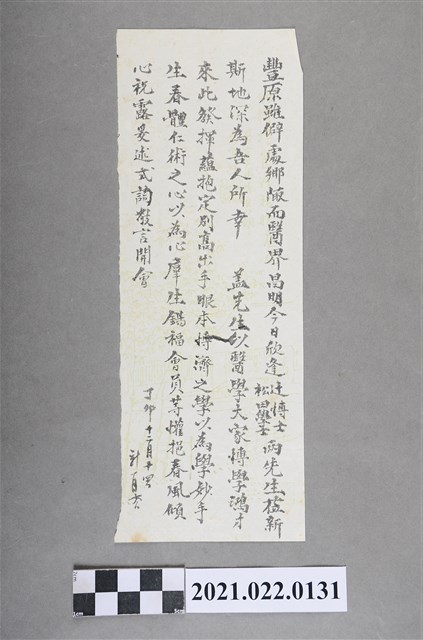 豐原雖僻處鄉陬而醫界昌明今日欣逢辻博士松田學士兩先生蒞新
斯地深為吾人所幸 蓋先生以醫學大家博學鴻才
來此發揮蘊抱定別高出手眼本博濟之學以為學妙手
生春體仁術之心以為心羣生錫福會員等懽挹春風傾
心祝露爰述式詢發言開會
丁卯十二月十四
2cm
5cm
2021.022.0131